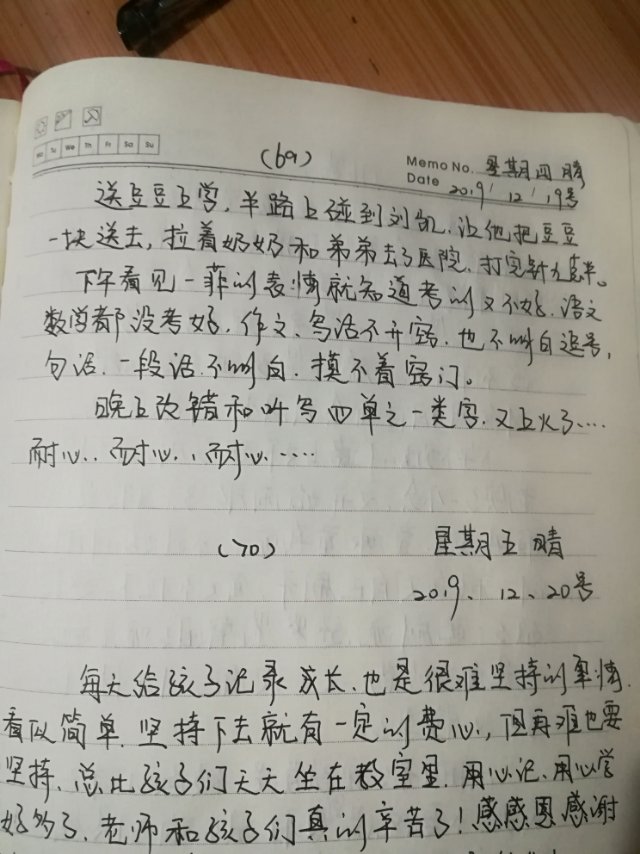 Mo Tu We Th Fr Sa Su
(69)
Memo No. 星期四 晴
Date 2019 / 12 / 19号
送豆豆上学，半路上碰到刘凯，让他把豆豆
一块送去，拉着奶奶和弟弟去了医院，打完针九点半。
下午看见一菲的表情就知道考的又不好，语文
数学都没考好，作文、写话不开窍，也不明白逗号，
句话，一段话不明白，摸不着窍门。
晚上改错和听写四单之一类字，又上火了……
耐心，耐心，耐心……
(70)
星期五 晴
2019、12、20号
每天给孩子记录成长，也是很难坚持的事情，
看似简单，坚持下去就有一定的费心，但再难也要
坚持，总比孩子们天天坐在教室里，用心记，用心学
好多了，老师和孩子们真的辛苦了！感感恩感谢